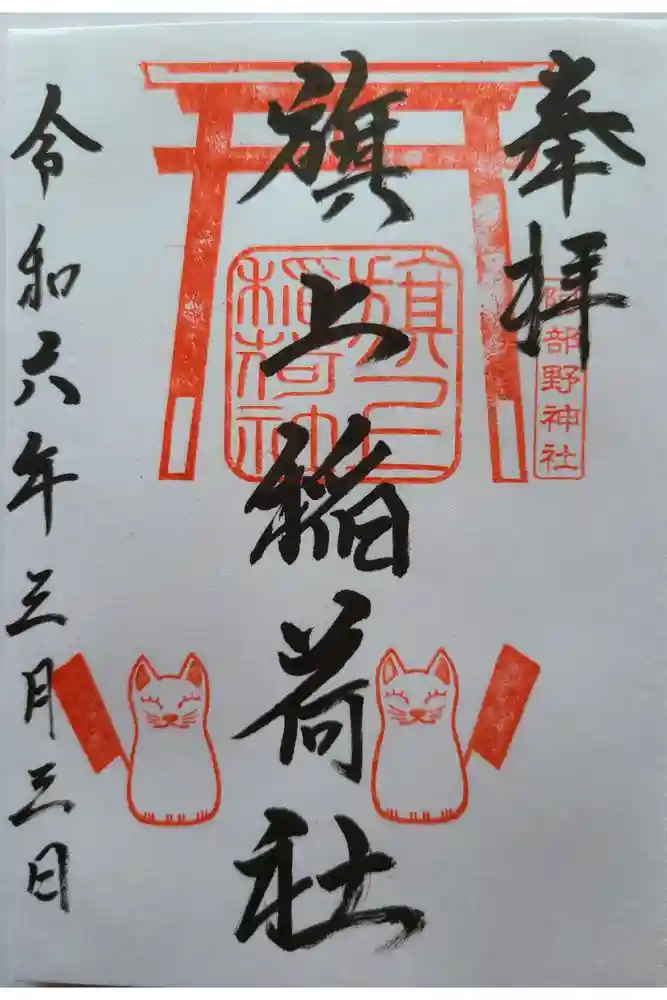 奉拝
阿部野神社
旗上稲荷社
旗上
稲荷神
令和六年三月三日